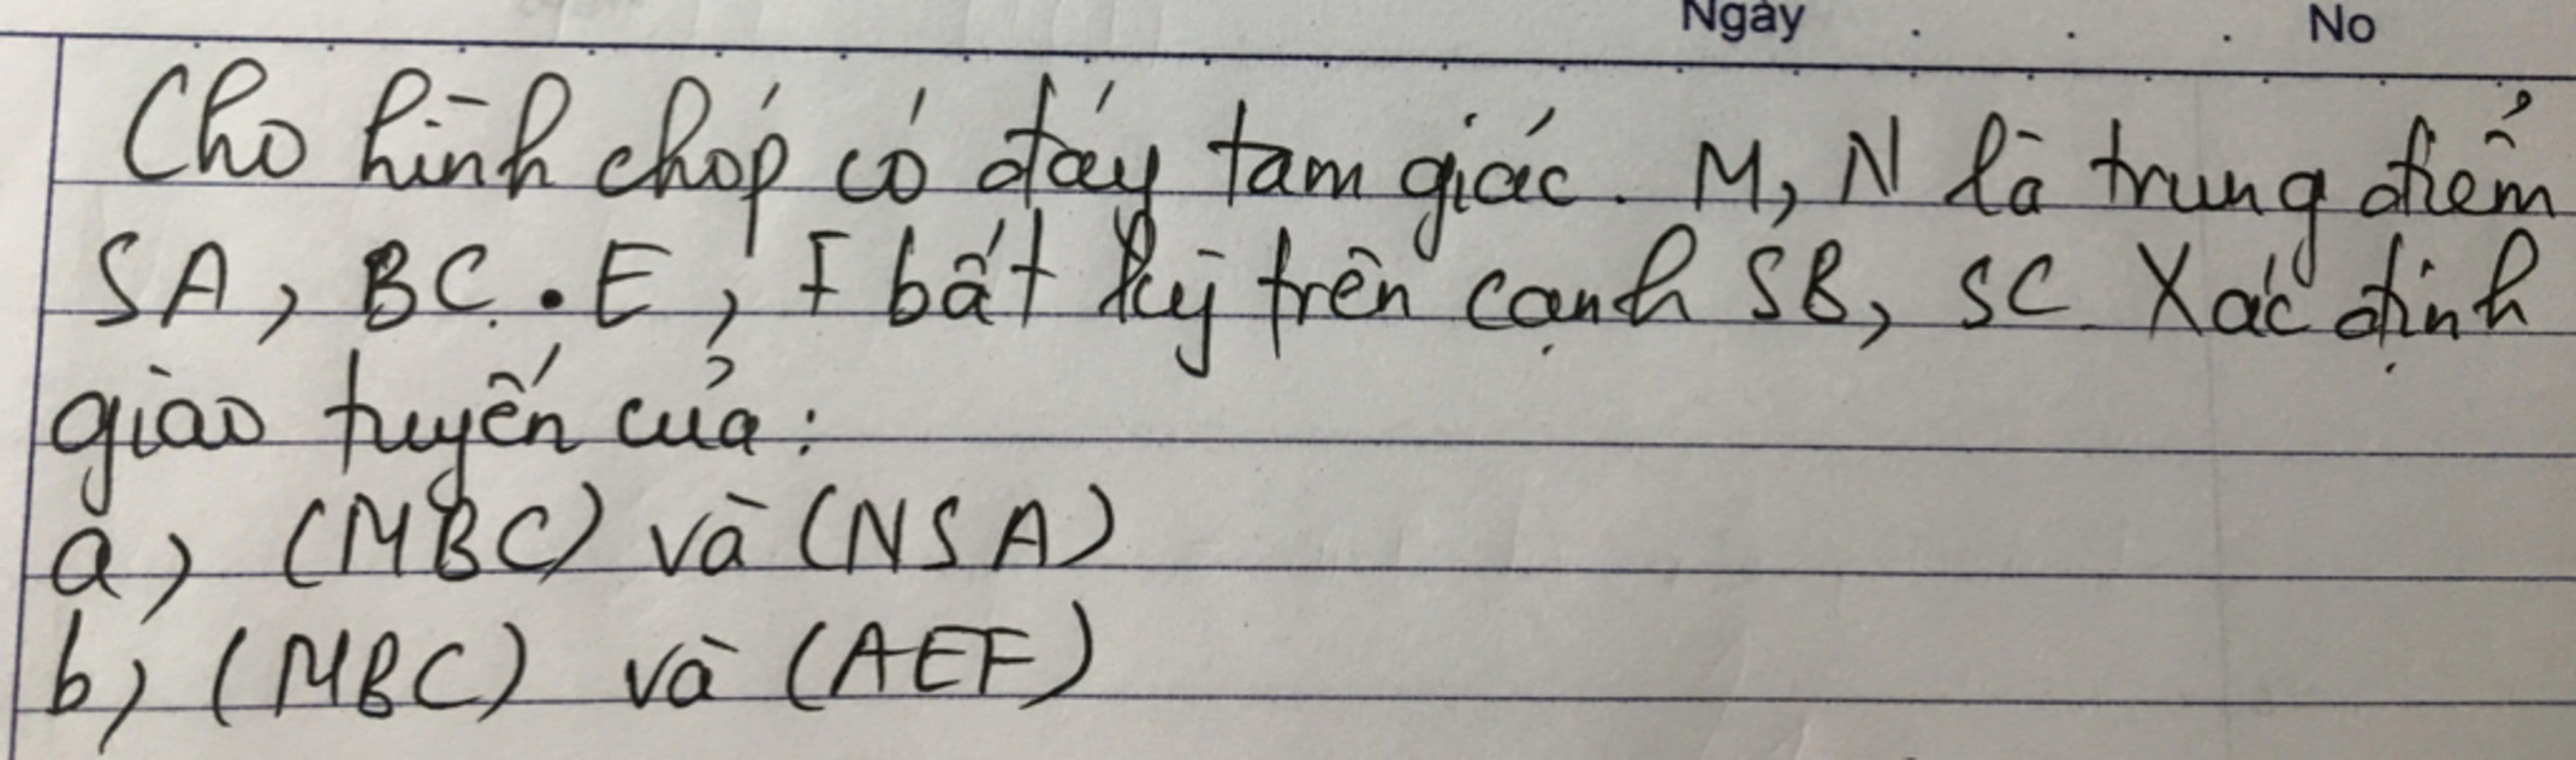 Ngày . . . No
Cho hình chóp có đáy tam giác. M, N là trung điểm
SA, BC. E, F bất kỳ trên cạnh SB, SC. Xác định
giao tuyến của:
a, (MBC) và (NSA)
b, (MBC) và (AEF)